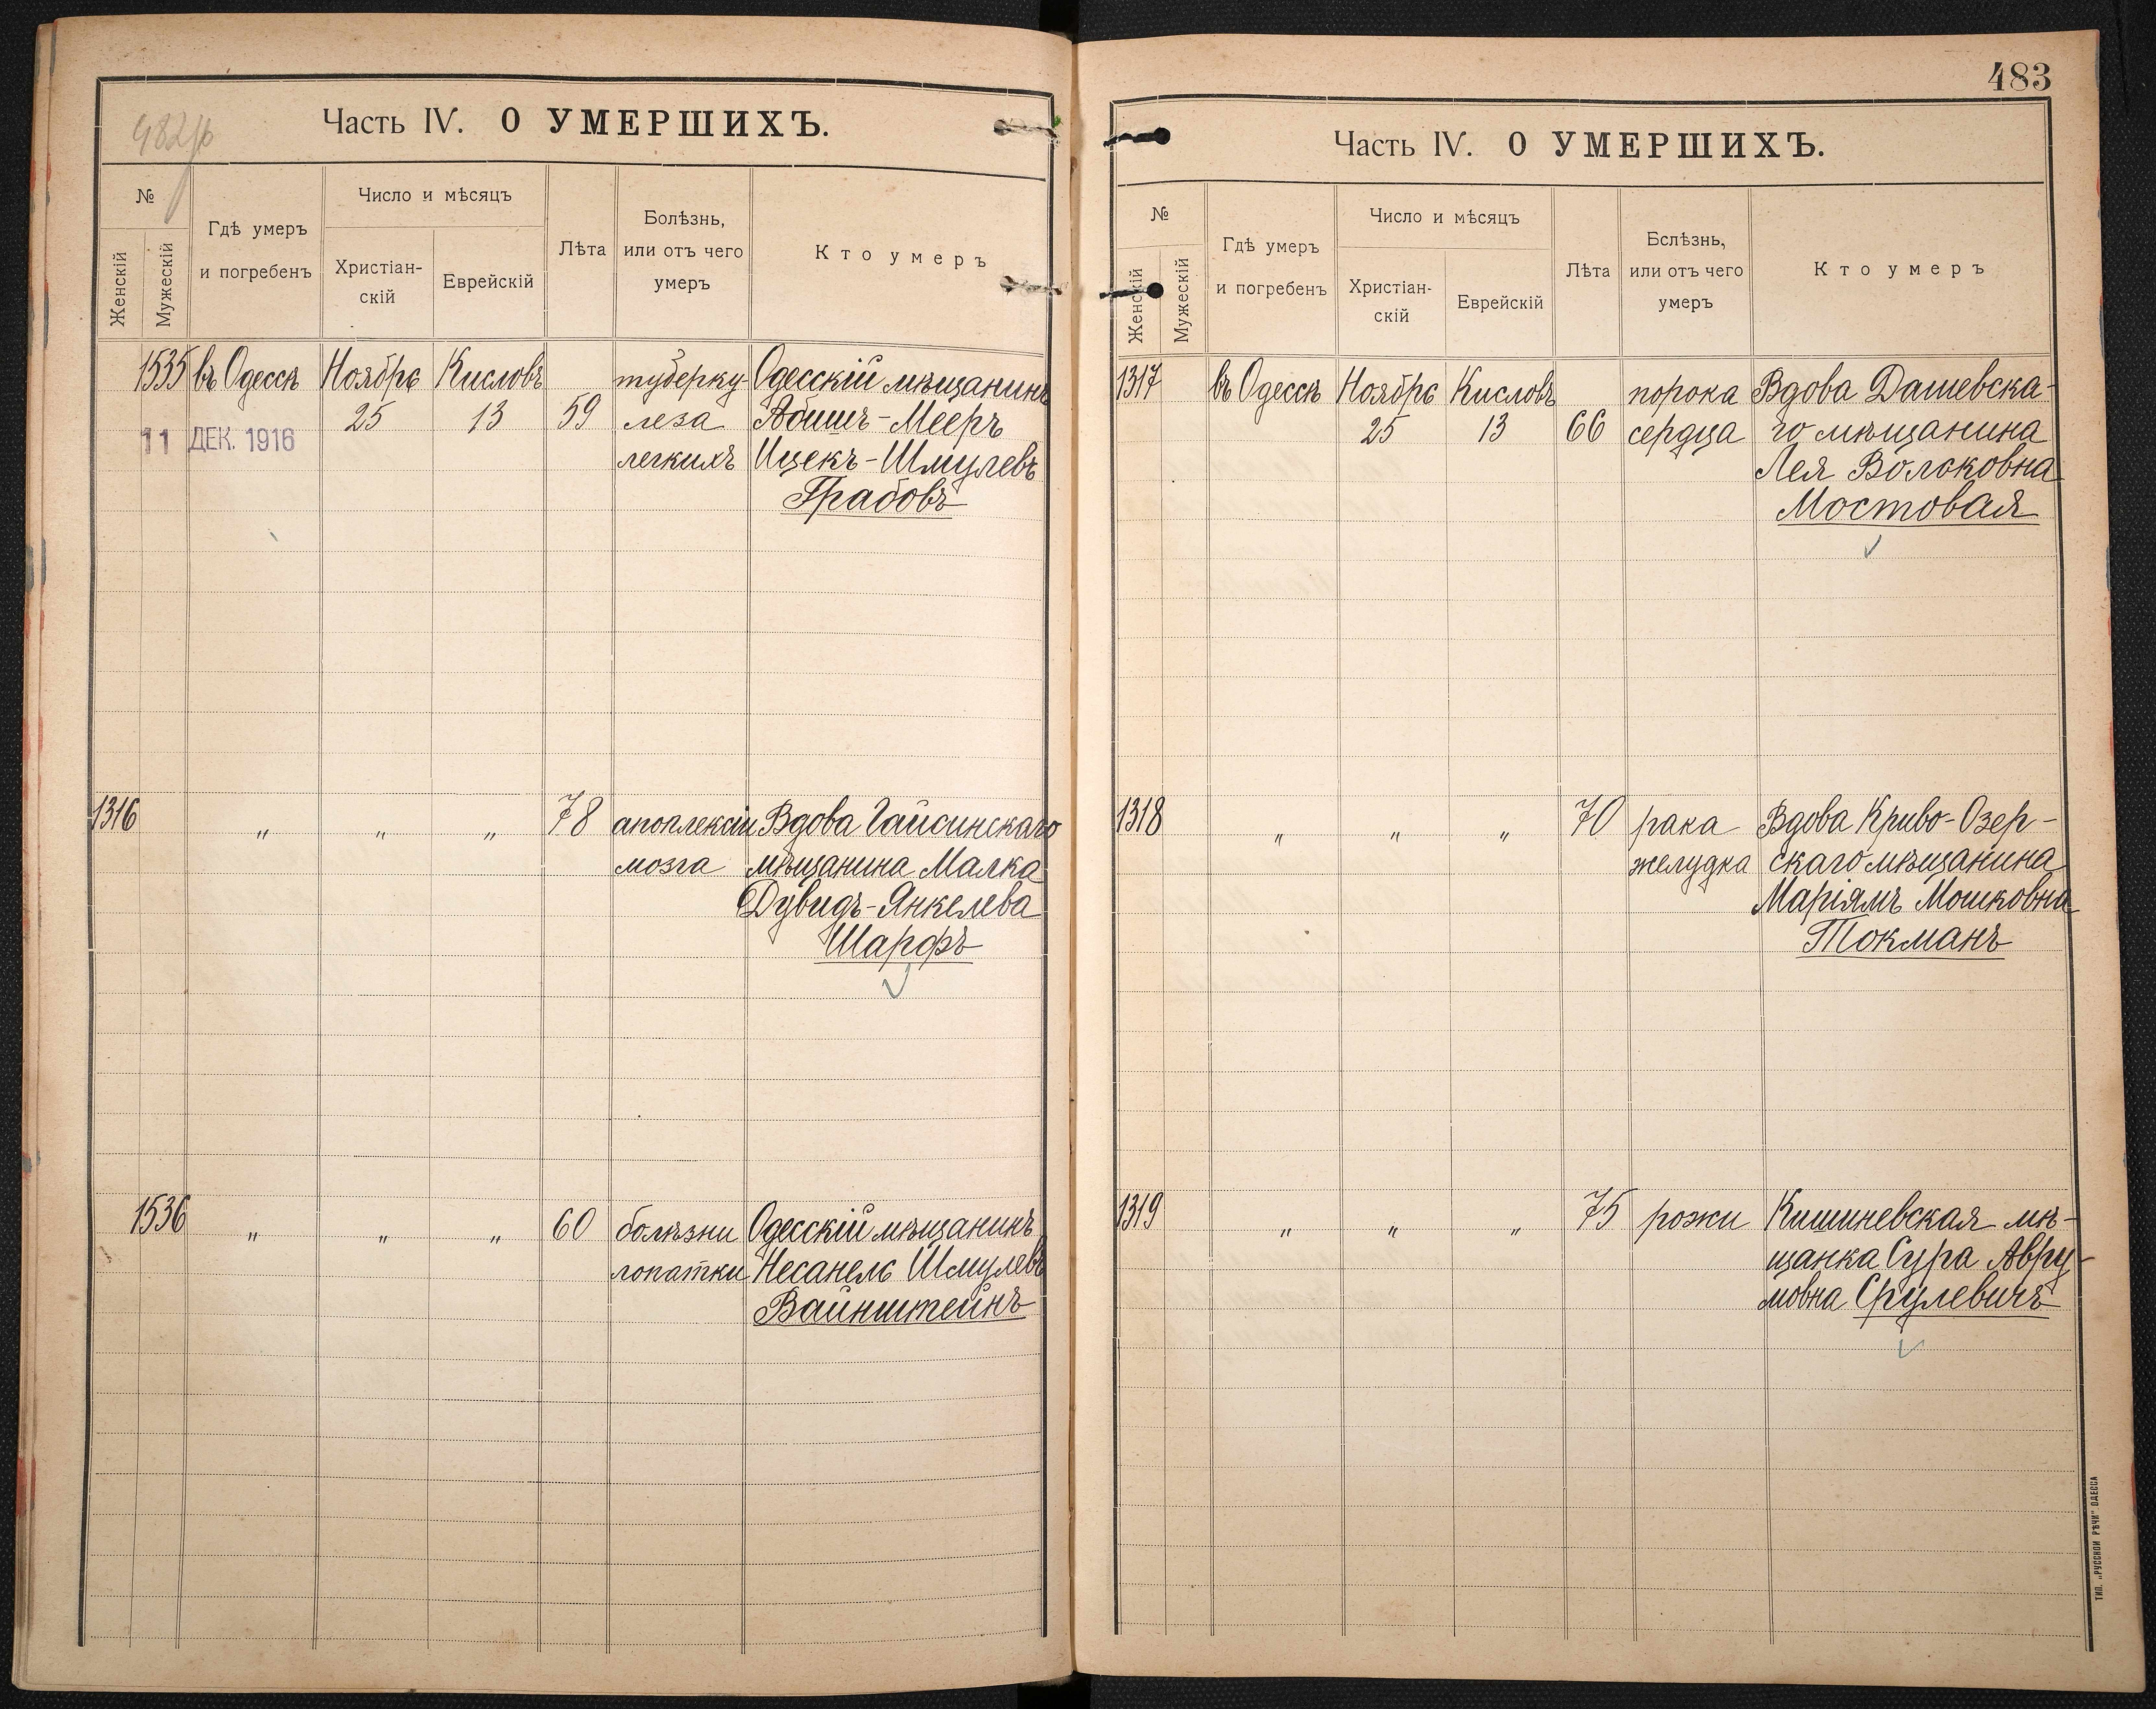 482 об
Часть IV. О УМЕРШИХЪ.
№
Женскій
Мужескій
Гдѣ умеръ
и погребенъ
Число и мѣсяцъ
Христіан-
скій
Еврейскій
Лѣта
Болѣзнь,
или отъ чего
умеръ
Кто умеръ
1535 въ Одессѣ Ноябрь Кисловъ туберку- Одесскій мѣщанинъ
25 13 59 леза Абишъ-Мееръ
11 ДЕК. 1916
легкихъ Ицекъ-Шмулевъ
Грабовъ
1316 " " " 78 апоплексіи Вдова Гайсинскаго
мозга мѣщанина Малка
Дувидъ-Янкелева
Шарфъ
1536 " " " 60 болѣзни Одесскій мѣщанинъ
лопатки Несанель Шмулевъ
Вайнштейнъ
483
Часть IV. О УМЕРШИХЪ.
№
Женскій
Мужескій
Гдѣ умеръ
и погребенъ
Число и мѣсяцъ
Христіан-
скій
Еврейскій
Лѣта
Бслѣзнь,
или отъ чего
умеръ
Кто умеръ
1317 въ Одессѣ Ноябрь Кисловъ порока Вдова Дашевска-
25 13 66 сердца го мѣщанина
Лея Волоковна
Мостовая
1318 " " " 70 рака Вдова Криво-Озер-
желудка скаго мѣщанина
Маріямъ Мошковна
Токманъ
1319 " " " 75 рожи Кишиневская мѣ-
щанка Сура Авру-
мовна Срулевичъ
ТИП. „РУССКОЙ РѢЧИ" ОДЕССА